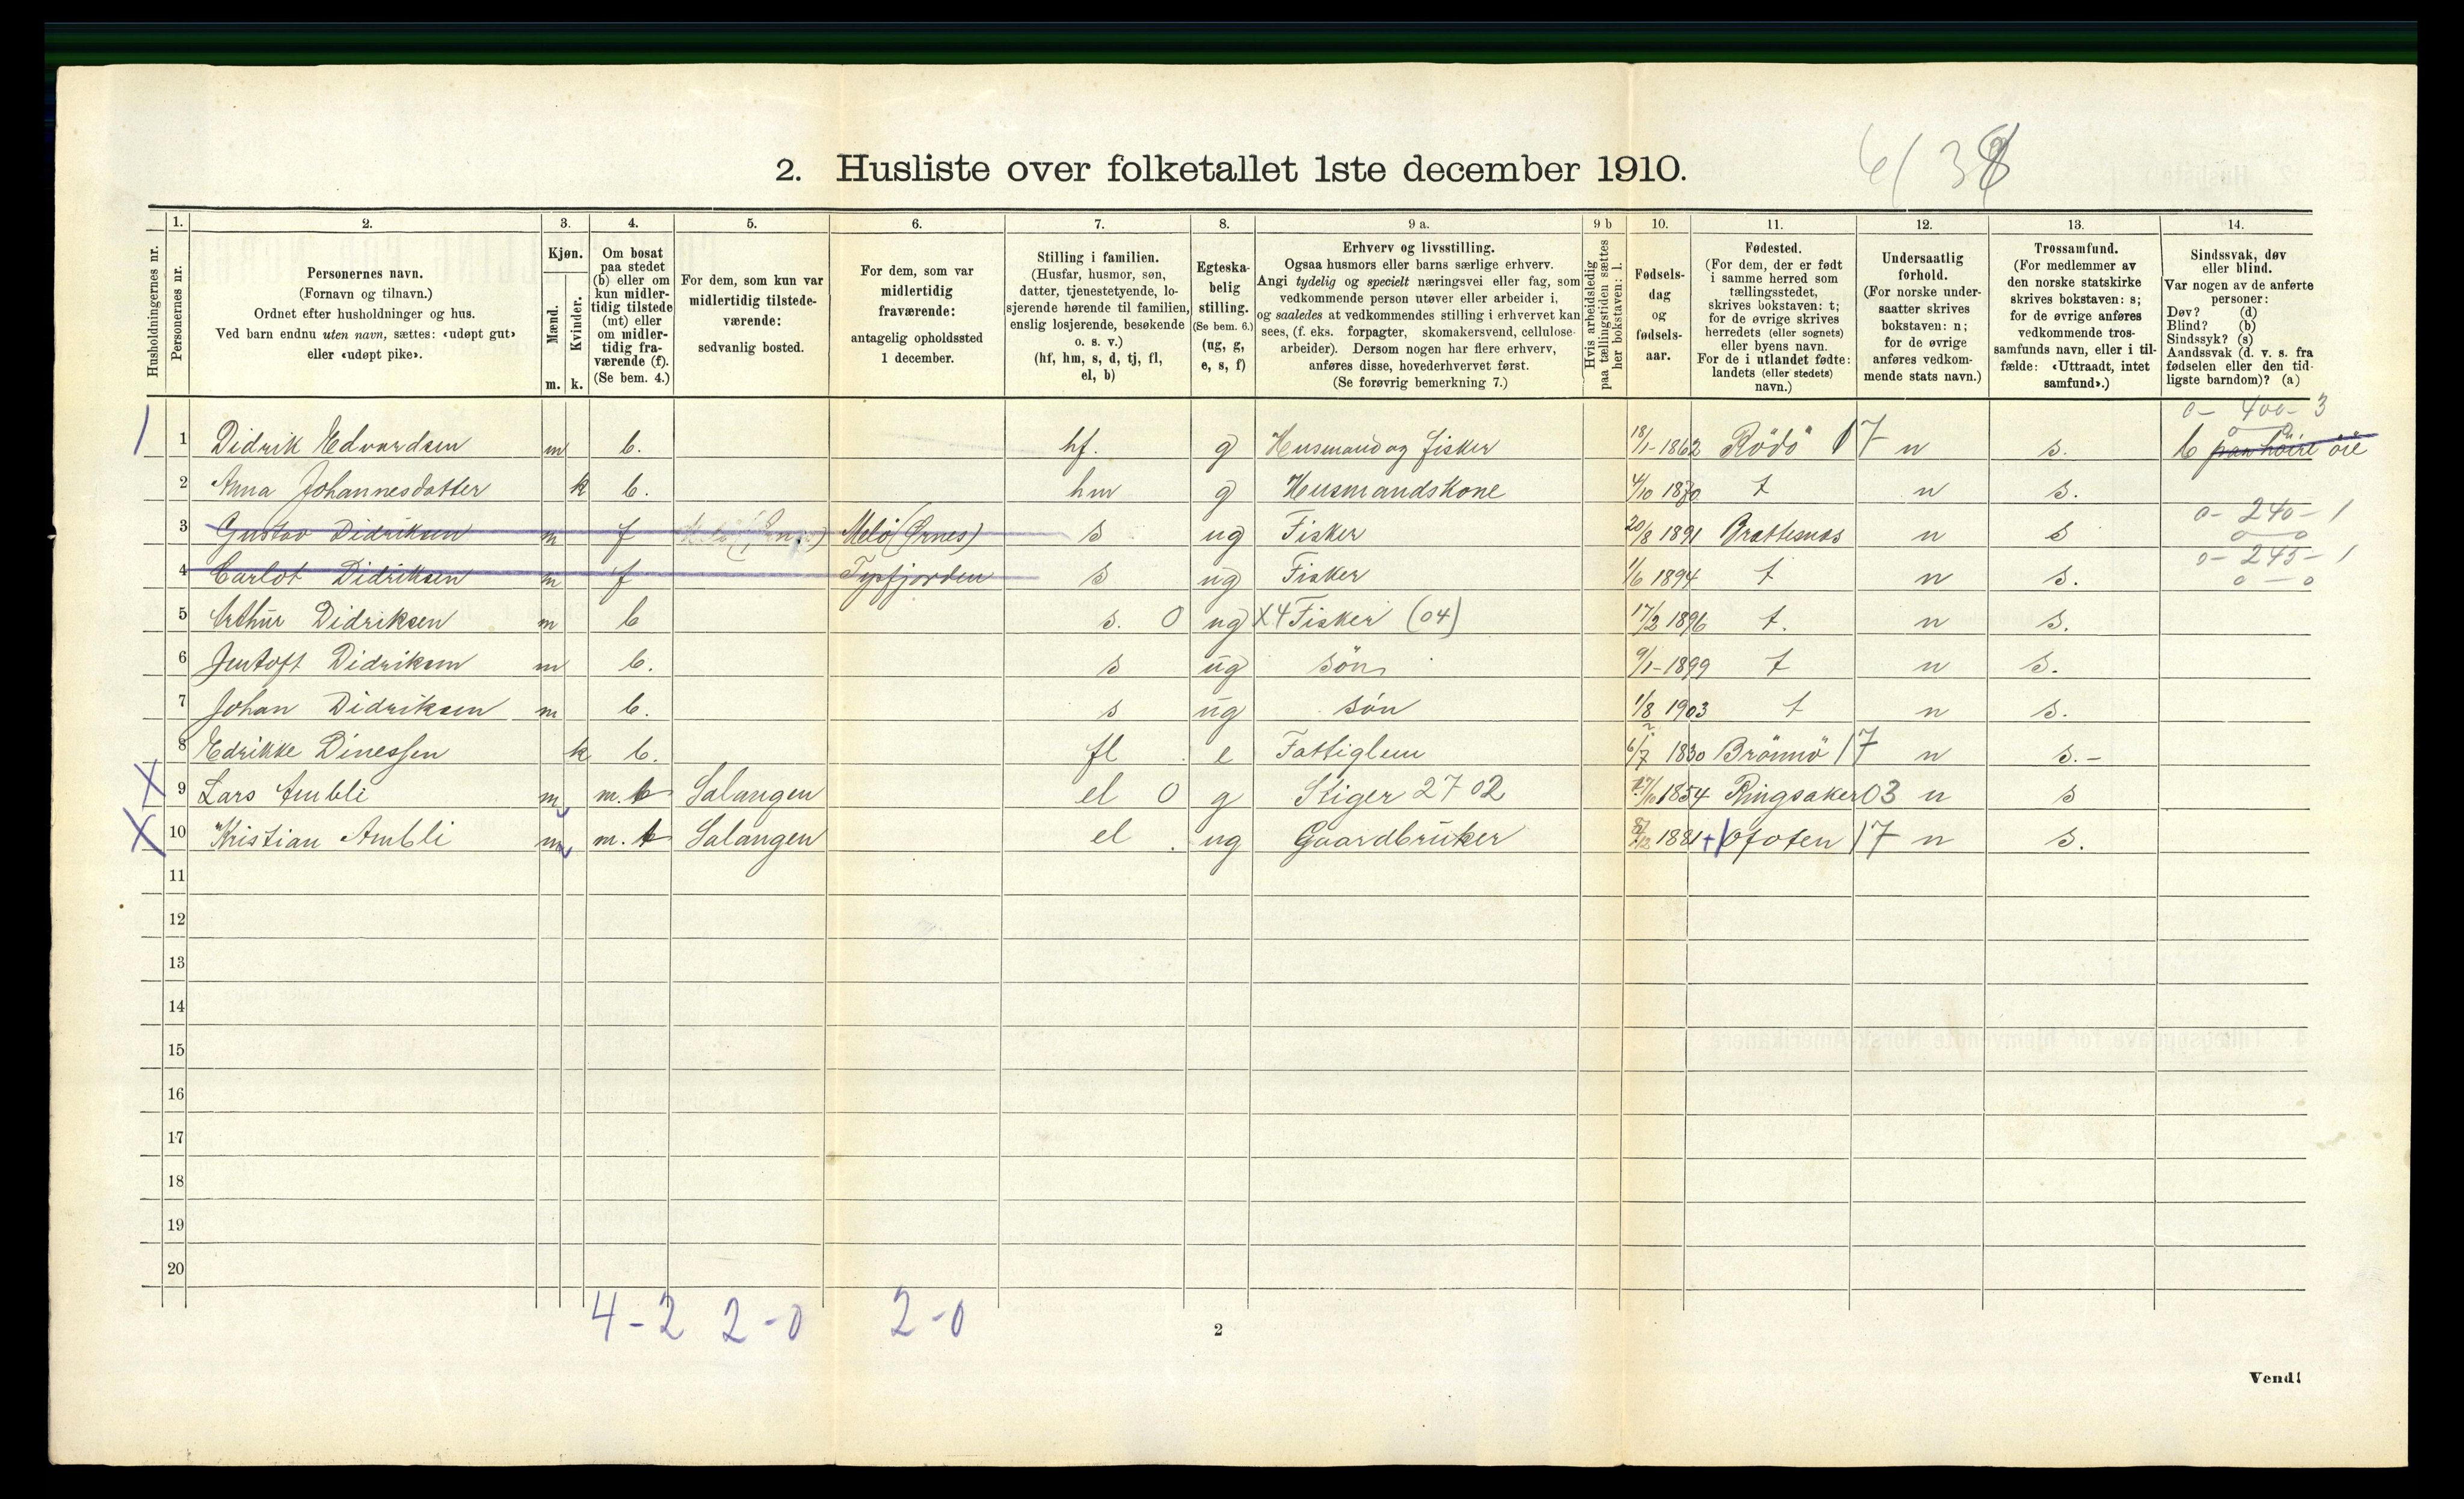 6/38
2. Husliste over folketallet 1ste december 1910.
Husholdningernes nr.
1.
Personernes nr.
2.
Personernes navn.
(Fornavn og tilnavn.)
Ordnet efter husholdninger og hus.
Ved barn endnu uten navn, sættes: «udøpt gut»
eller «udøpt pike».
3.
Kjøn.
Mænd.
Kvinder.
m. k.
4.
Om bosat
paa stedet
(b) eller om
kun midler-
tidig tilstede
(mt) eller
om midler-
tidig fra-
værende (f).
(Se bem. 4.)
5.
For dem, som kun var
midlertidig tilstede-
værende:
sedvanlig bosted.
6.
For dem, som var
midlertidig
fraværende:
antagelig opholdssted
1 december.
7.
Stilling i familien.
(Husfar, husmor, søn,
datter, tjenestetyende, lo-
sjerende hørende til familien,
enslig losjerende, besøkende
o. s. v.)
(hf, hm, s, d, tj, fl,
el, b)
8.
Egteska-
belig
stilling.
(Se bem. 6.)
(ug, g,
e, s, f)
9 a.
Erhverv og livsstilling.
Ogsaa husmors eller barns særlige erhverv.
Angi tydelig og specielt næringsvei eller fag, som
vedkommende person utøver eller arbeider i,
og saaledes at vedkommendes stilling i erhvervet kan
sees, (f. eks. forpagter, skomakersvend, cellulose-
arbeider). Dersom nogen har flere erhverv,
anføres disse, hovederhvervet først.
(Se forøvrig bemerkning 7.)
9 b
Hvis arbeidsledig
paa tællingstiden sættes
her bokstaven: l.
10.
Fødsels-
dag
og
fødsels-
aar.
11.
Fødested.
(For dem, der er født
i samme herred som
tællingsstedet,
skrives bokstaven: t;
for de øvrige skrives
herredets (eller sognets)
eller byens navn.
For de i utlandet fødte:
landets (eller stedets)
navn.)
12.
Undersaatlig
forhold.
(For norske under-
saatter skrives
bokstaven: n;
for de øvrige
anføres vedkom-
mende stats navn.)
13.
Trossamfund.
(For medlemmer av
den norske statskirke
skrives bokstaven: s;
for de øvrige anføres
vedkommende tros-
samfunds navn, eller i til-
fælde: «Uttraadt, intet
samfund».)
14.
Sindssvak, døv
eller blind.
Var nogen av de anførte
personer:
Døv? (d)
Blind? (b)
Sindssyk? (s)
Aandssvak (d. v. s. fra
fødselen eller den tid-
ligste barndom)? (a)
0- 400- 3
1 Didrik Edvardsen m b. hf. g Husmand og fisker 18/1-1862 Rödö 17 n s. b paa höire öie
2 Anna Johannesdatter k b. hm g Husmandskone 4/10 1870 t n s.
0- 240- 1
3 Gustav Didriksen m f Melö (Ørnes) s ug Fisker 20/8 1891 Brattesnes n s 0 0
0- 245- 1
4 Carlot Didriksen m f Tysfjorden s ug Fisker 1/6 1894 t n s. 0-0
5 Arthur Didriksen m b s. 0 ug X4 Fisker (04) 17/2 1896 t. n s.
6 Jentoft Didriksen m b. s ug sön 9/1-1899 t n s.
7 Johan Didriksen m b. s ug sön 1/8 1903 t n s.
8 Edrikke Dinessen k b. fl e Fattiglem 6/7 1830 Brönnö 17 n s.-
X 9 Lars Ambli m m. t Salangen el 0 g Stiger 2702 1854 Ringsaker 03 n s
X 10 Kristian Ambli m m. t Salangen el ug Gaardbruker 1881 + Ofoten 17 n s.
11
12
13
14
15
16
17
18
19
20
4-2 2-0 2-0
2
Vend!